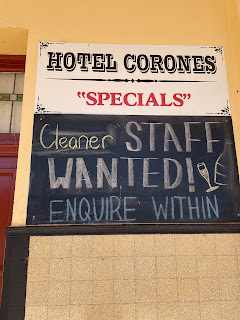 HOTEL CORONES
"SPECIALS"
Cleaner STAFF
WANTED!
ENQUIRE WITHIN